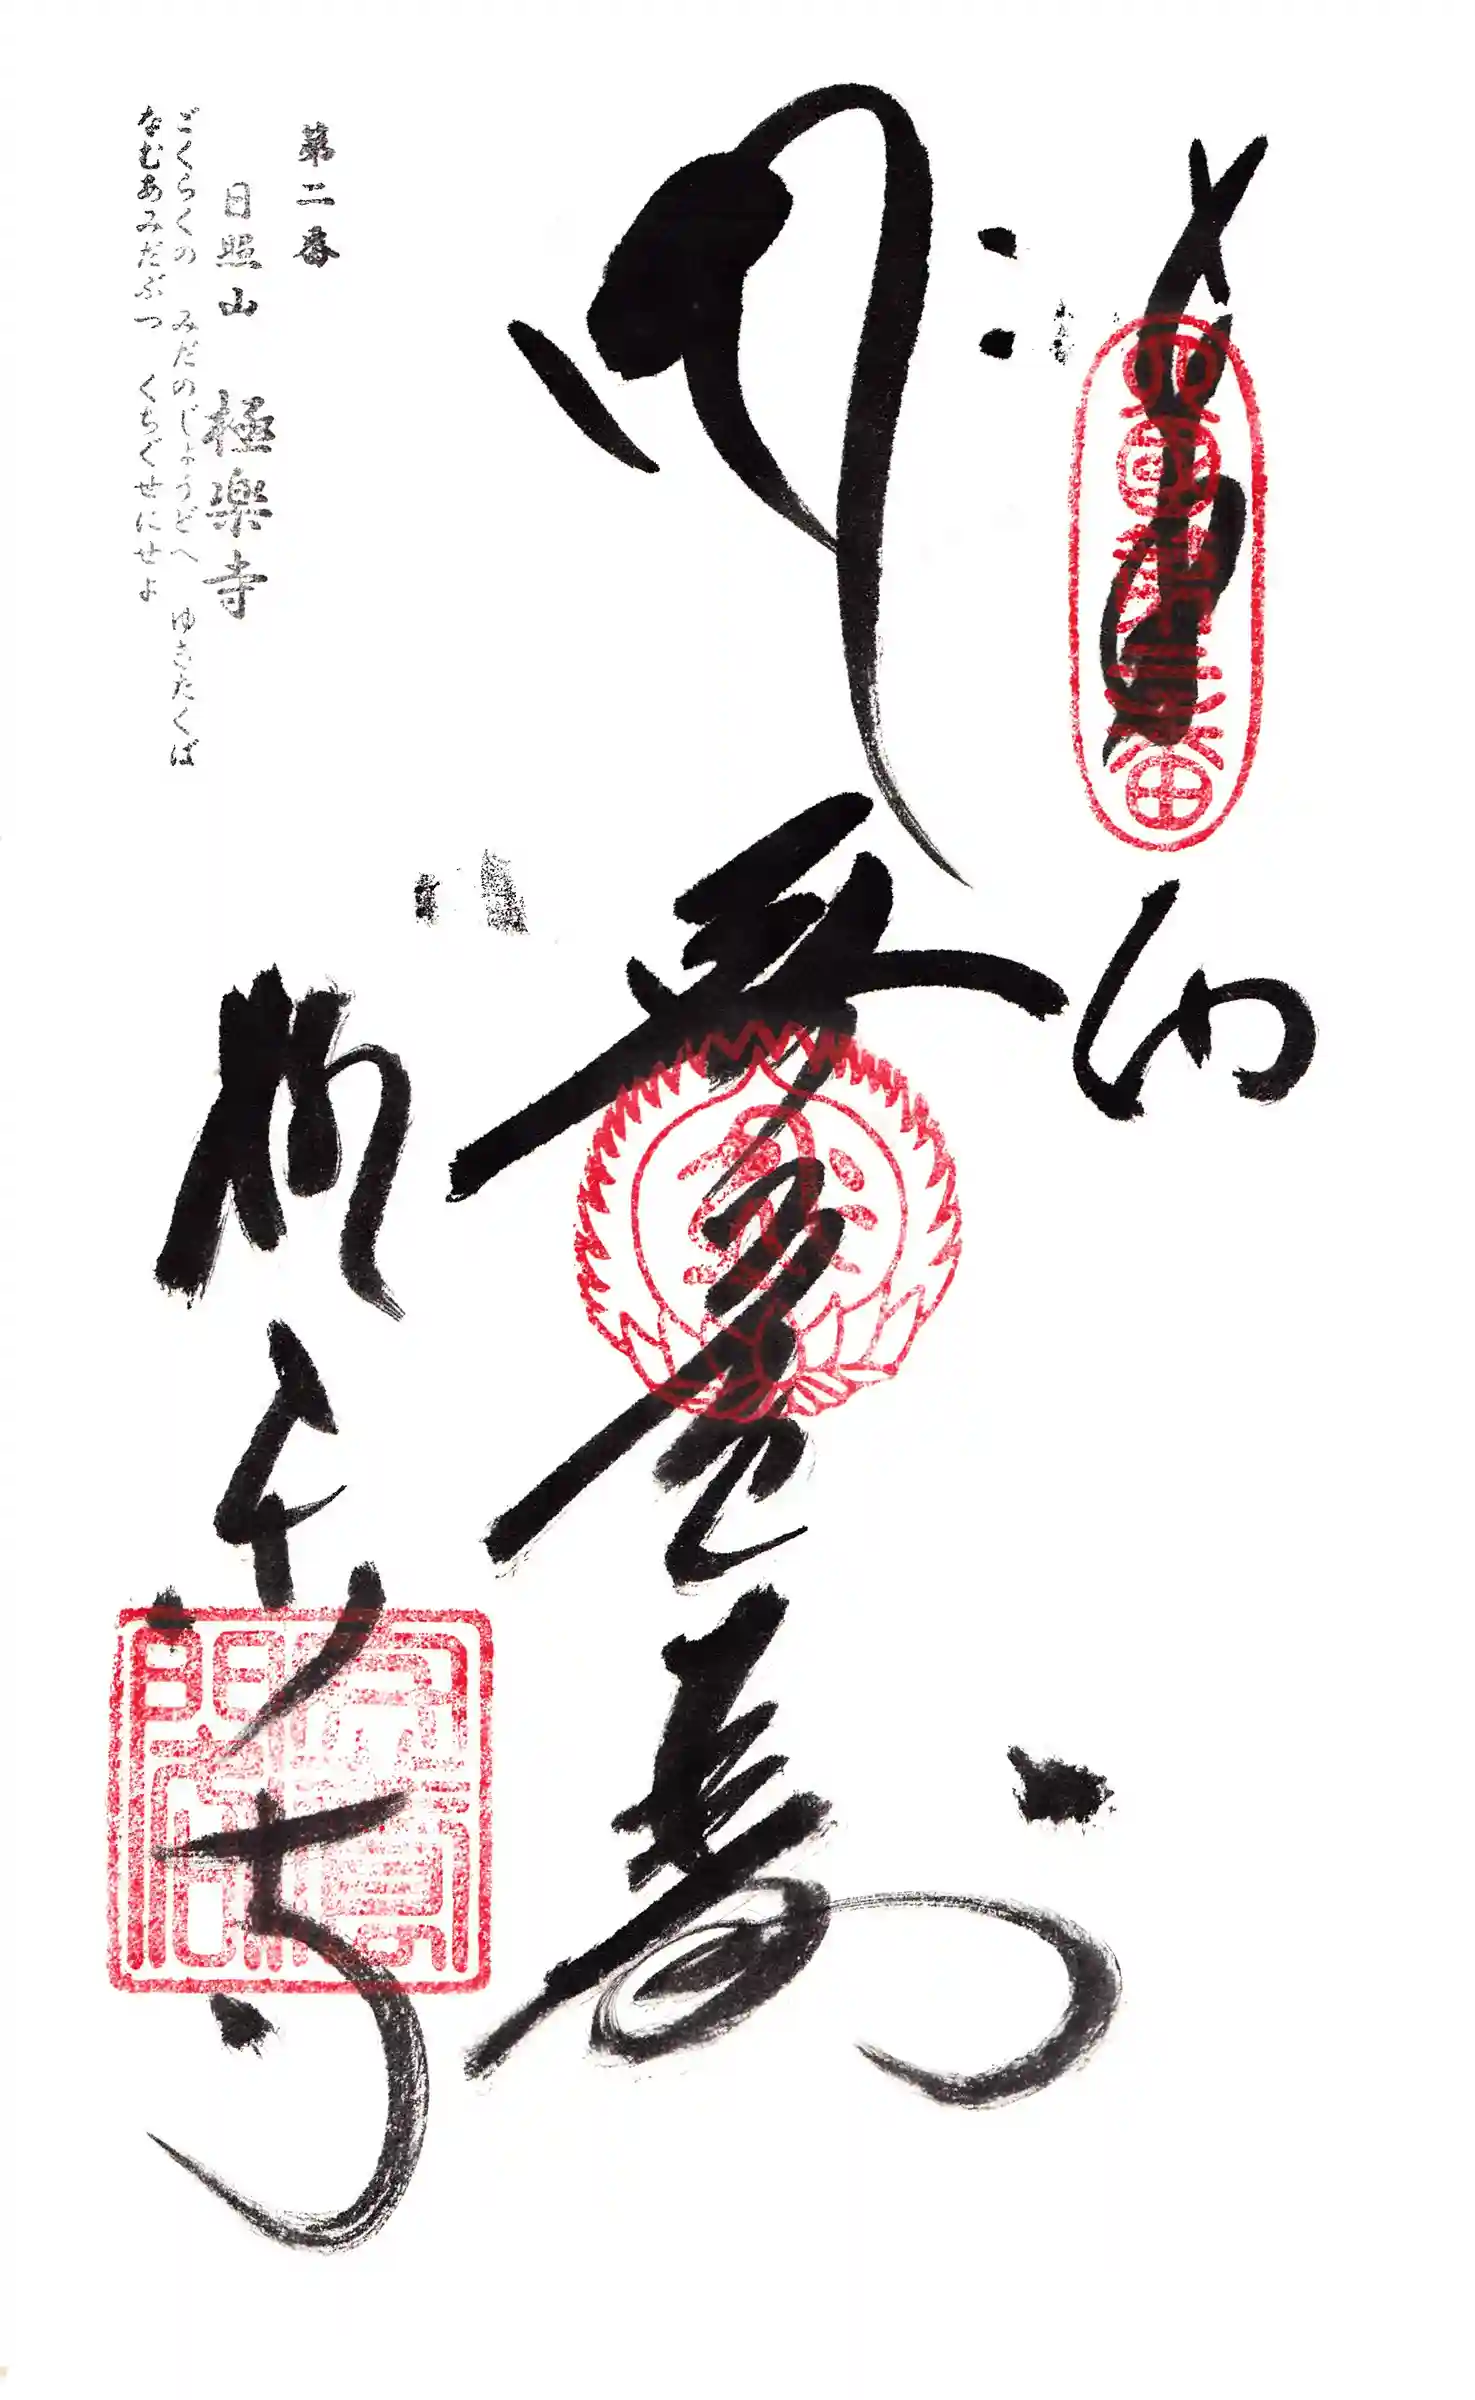 奉納
四国第二番
無量寿
極楽寺
第二番
日照山 極楽寺
ごくらくの みだのじょうどへ ゆきたくば
なむあみだぶつ くちぐせにせよ